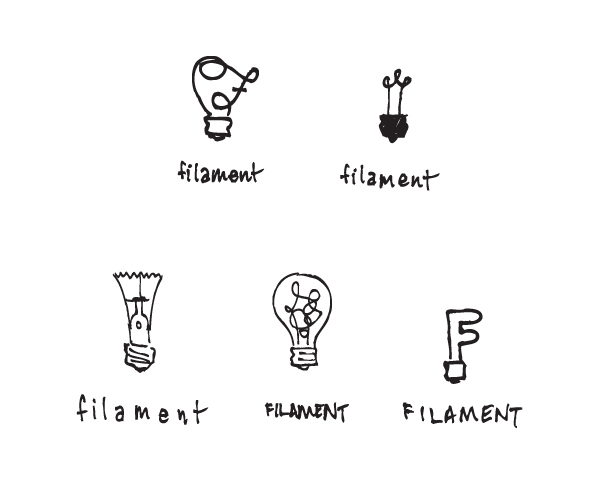 filament
filament
filament
FILAMENT
FILAMENT